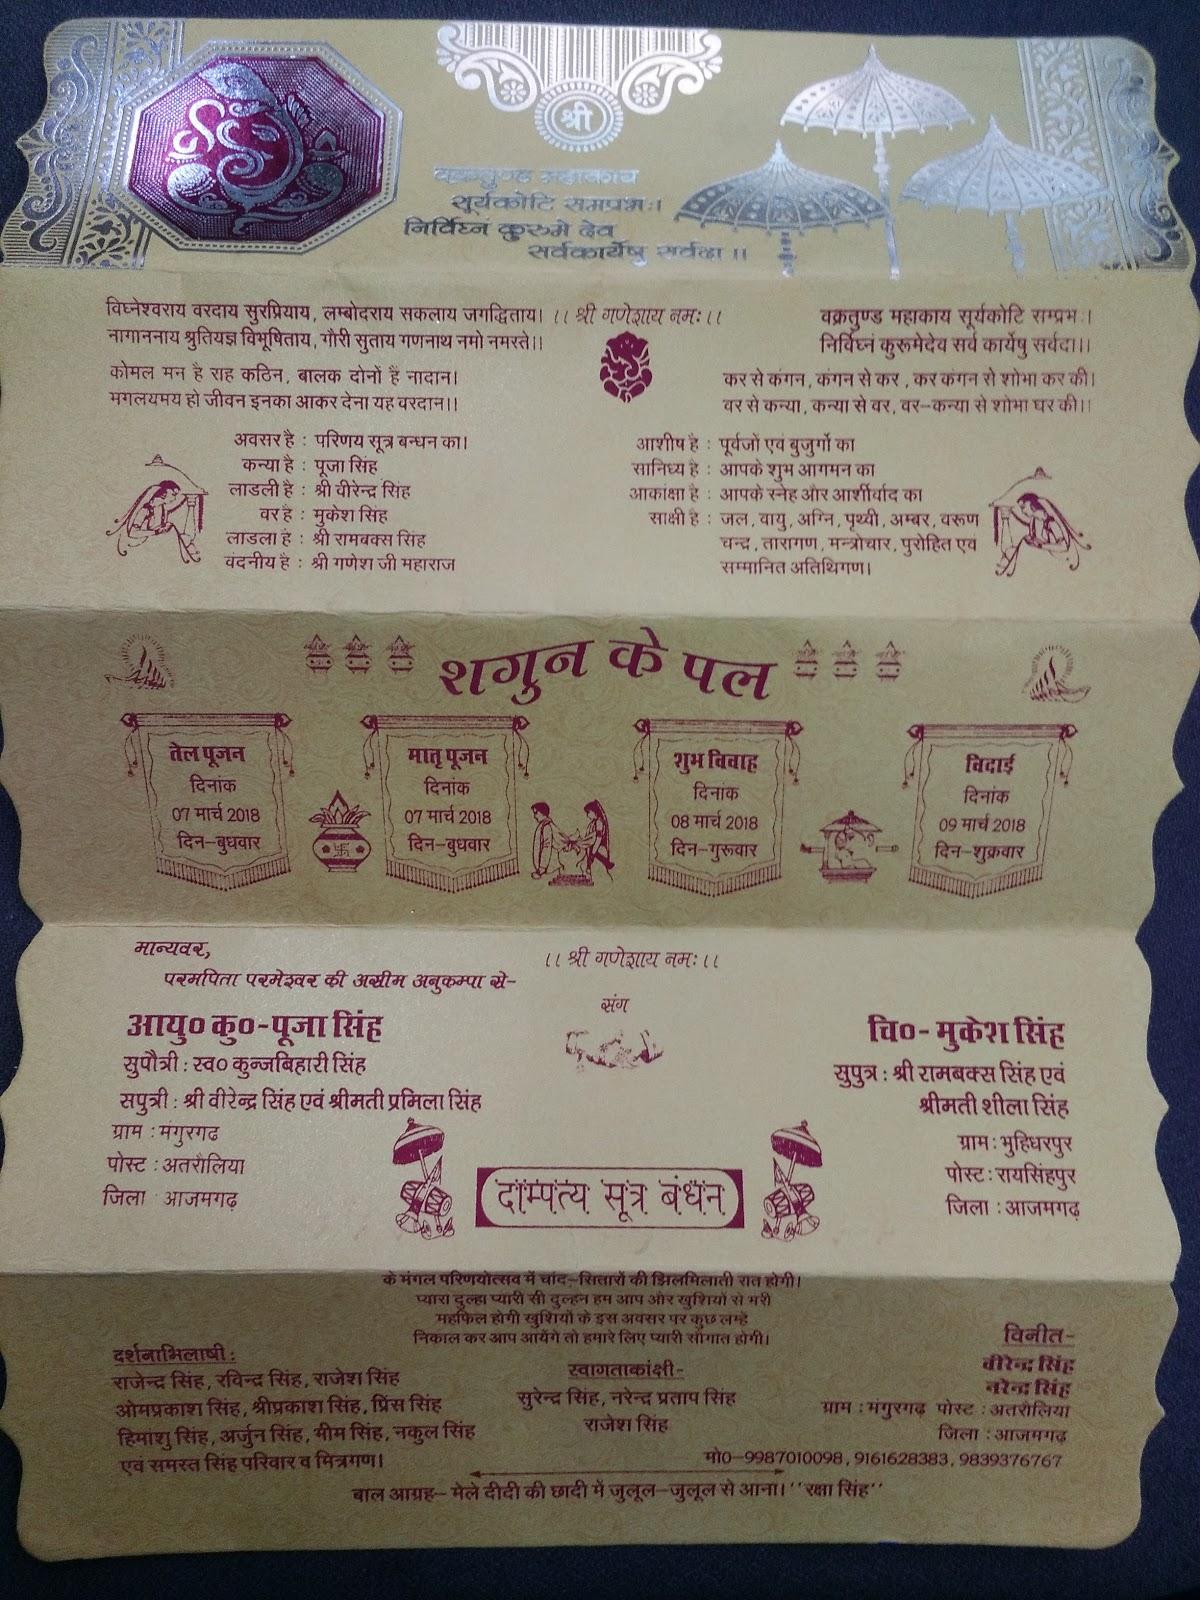 श्री
वक्रतुण्ड महाकाय
सूर्यकोटि समप्रभः।
निर्विघ्नं कुरुमे देव
सर्वकार्येषु सर्वदा ॥
विघ्नेश्वराय वरदाय सुरप्रियाय, लम्बोदराय सकलाय जगद्धिताय।
नागाननाय श्रुतियज्ञ विभूषिताय, गौरी सुताय गणनाथ नमो नमस्ते।।
कोमल मन है राह कठिन, बालक दोनों हैं नादान।
मगलयमय हो जीवन इनका आकर देना यह वरदान।।
।। श्री गणेशाय नमः।।
वक्रतुण्ड महाकाय सूर्यकोटि सम्प्रभः।
निर्विघ्नं कुरूमेदेव सर्व कार्येषु सर्वदा।।
कर से कंगन, कंगन से कर, कर कंगन से शोभा कर की।
वर से कन्या, कन्या से वर, वर-कन्या से शोभा घर की।।
अवसर है : परिणय सूत्र बन्धन का।
कन्या है : पूजा सिंह
लाडली है : श्री वीरेन्द्र सिंह
वर है : मुकेश सिंह
लाडला है : श्री रामबक्स सिंह
वंदनीय है : श्री गणेश जी महाराज
आशीष है : पूर्वजों एवं बुजुर्गो का
सानिध्य है : आपके शुभ आगमन का
आकांक्षा है : आपके स्नेह और आर्शीर्वाद का
साक्षी है : जल, वायु, अग्नि, पृथ्वी, अम्बर, वरूण
चन्द्र, तारागण, मन्त्रोचार, पुरोहित एवं
सम्मानित अतिथिगण।
शगुन के पल
तेल पूजन
दिनांक
07 मार्च 2018
दिन-बुधवार
मातृ पूजन
दिनांक
07 मार्च 2018
दिन-बुधवार
शुभ विवाह
दिनांक
08 मार्च 2018
दिन-गुरूवार
विदाई
दिनांक
09 मार्च 2018
दिन-शुक्रवार
मान्यवर,
।। श्री गणेशाय नमः।।
परमपिता परमेश्वर की असीम अनुकम्पा से-
आयु० कु०-पूजा सिंह
सुपौत्री : स्व० कुन्जबिहारी सिंह
सपुत्री : श्री वीरेन्द्र सिंह एवं श्रीमती प्रमिला सिंह
ग्राम : मंगुरगढ
पोस्ट : अतरौलिया
जिला : आजमगढ़
संग
चि०- मुकेश सिंह
सुपुत्र : श्री रामबक्स सिंह एवं
श्रीमती शीला सिंह
ग्राम : भुहिधरपुर
पोस्ट : रायसिंहपुर
जिला : आजमगढ़
दाम्पत्य सूत्र बंधन
के मंगल परिणयोत्सव में चांद-सितारों की झिलमिलाती रात होगी।
प्यारा दुल्हा प्यारी सी दुल्हन हम आप और खुशियों से भरी
महफिल होगी खुशियों के इस अवसर पर कुछ लम्हें
निकाल कर आप आयेंगे तो हमारे लिए प्यारी सौगात होगी।
दर्शनाभिलाषी :
राजेन्द्र सिंह, रविन्द्र सिंह, राजेश सिंह
ओमप्रकाश सिंह, श्रीप्रकाश सिंह, प्रिंस सिंह
हिमांशु सिंह, अर्जुन सिंह, भीम सिंह, नकुल सिंह
एवं समस्त सिंह परिवार व मित्रगण।
स्वागताकांक्षी-
सुरेन्द्र सिंह, नरेन्द्र प्रताप सिंह
राजेश सिंह
विनीत-
वीरेन्द्र सिंह
नरेन्द्र सिंह
ग्राम : मंगुरगढ़ पोस्ट : अतरौलिया
जिला : आजमगढ़
मो0-9987010098, 9161628383, 9839376767
बाल आग्रह- मेले दीदी की छादी में जुलूल-जुलूल से आना। ''रक्षा सिंह''